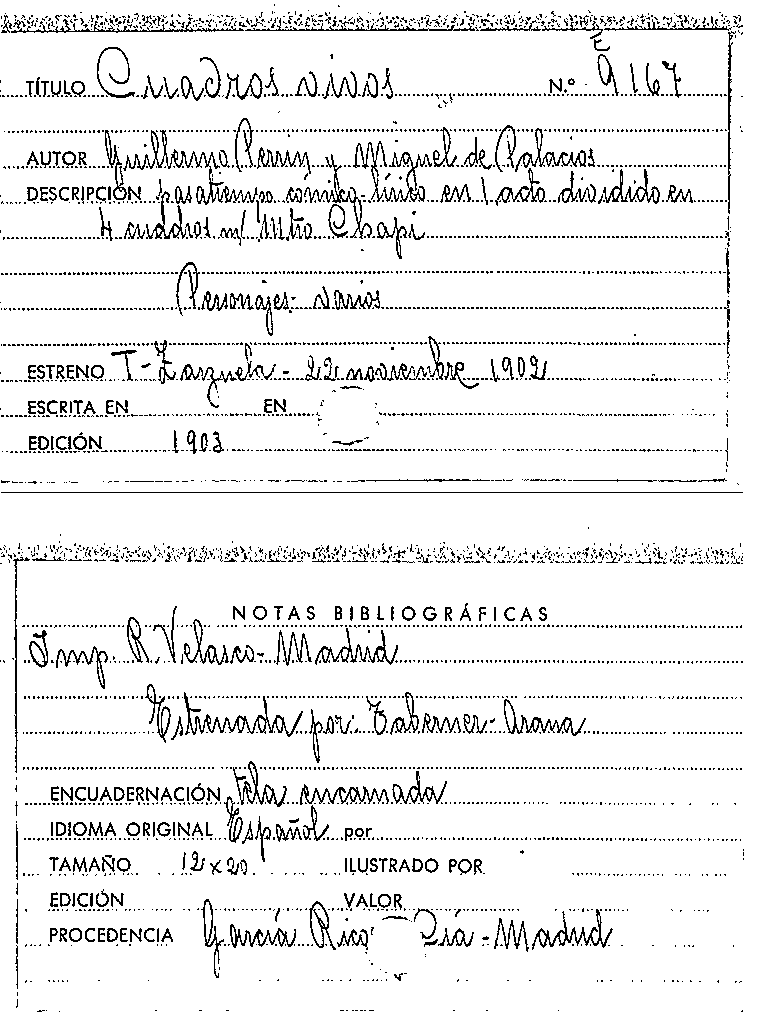 TÍTULO Cuadros vivos N.º E 9167
AUTOR Guillermo Perrin y Miguel de Palacios
DESCRIPCIÓN pasatiempo cómico-lírico en 1 acto dividido en
4 cuadros m/ Mtro Chapi
Personajes- varios
ESTRENO T-Zarzuela- 22 noviembre 1902
ESCRITA EN EN
EDICIÓN 1903
NOTAS BIBLIOGRÁFICAS
Imp. R. Velasco- Madrid
Estrenada por: Taberner- Arana
ENCUADERNACIÓN tela encarnada
IDIOMA ORIGINAL Español por
TAMAÑO 12x20 ILUSTRADO POR
EDICIÓN VALOR
PROCEDENCIA García Rico Cía - Madrid